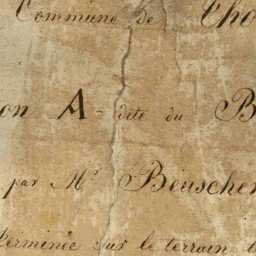 Commune de Cho
on A dite du B
par Mr Beuscher
Terminée sur le terrain l